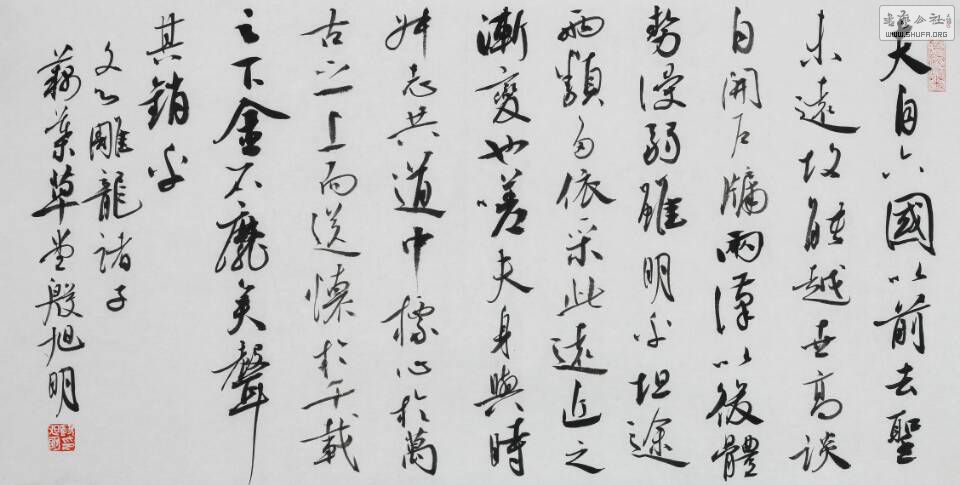 夫自六國以前去聖
未遠故能越世高談
自開戶牖兩漢以後體
勢漫弱雖明乎坦途
而類多依采此遠近之
漸變也嗟夫身與時
舛志共道申標心於萬
古之上而送懷於千載
之下金石靡矣聲
其銷乎
文心雕龍諸子
藕葉草堂殷旭明
书艺公社
WWW.SHUFA.ORG